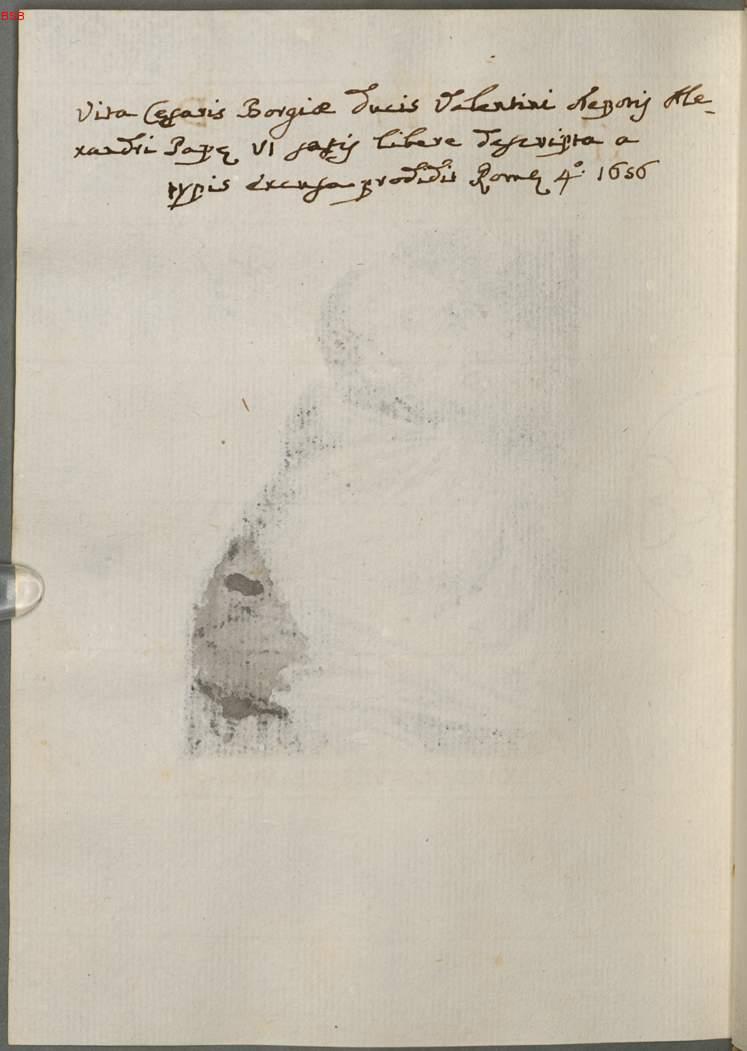 BSB
Vita Cęsaris Borgiæ Ducis Valentini Nepotis Ale-
xandri Papę VI satis libere descripta a
typis excusa prodidit Romę 4º. 1656